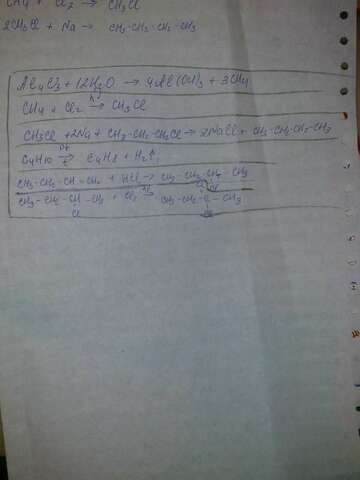 CH4 + Cl2 → CH3Cl
2CH3Cl + Na → CH3-CH2-CH2-CH3
Al4C3 + 12H2O → 4Al(OH)3 + 3CH4
CH4 + Cl2 hν → CH3Cl
CH3Cl + 2Na + CH3-CH2-CH2Cl → 2NaCl + CH3-CH2-CH2-CH3
C4H10 Pt ⇄ t C4H8 + H2↑
CH3-CH2-CH=CH2 + HCl → CH3-CH2-CH-CH3
Cl
CH3-CH2-CH-CH3 + Cl2 hν → CH3-CH2-C-CH3
Cl